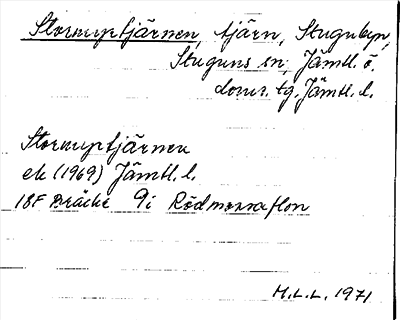 Stormyrtjärnen, tjärn, Stuguby,
Stuguns sn, Jämtl. ö.
doms. tg. Jämtl. l.
Stormyrtjärnen
ek (1969) Jämtl. l.
18F Bräcke 9i Rödmossaflon
M.L.L. 1971